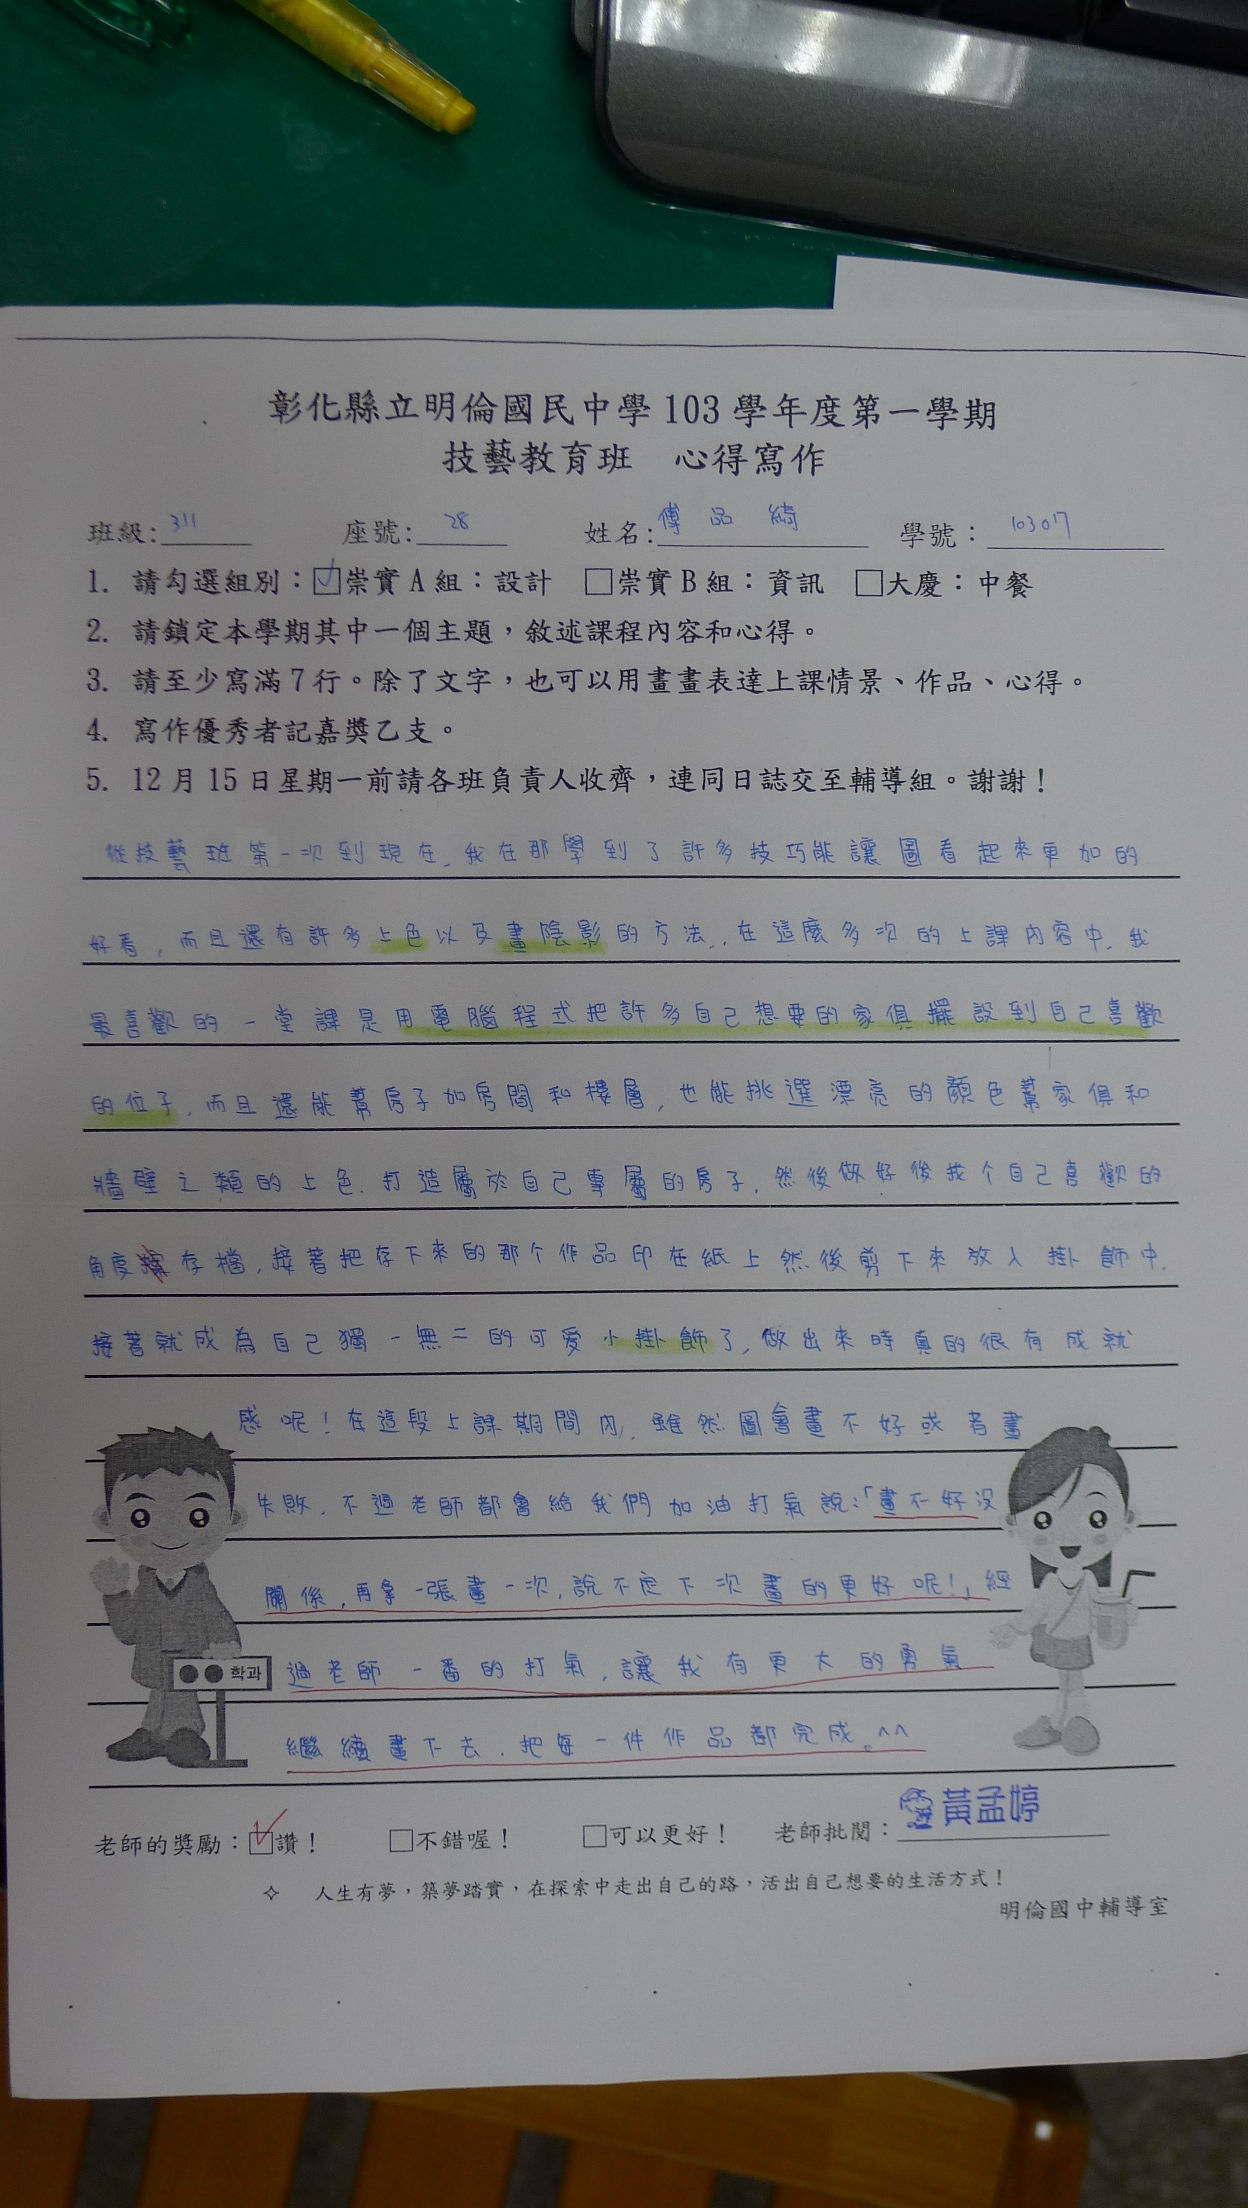 彰化縣立明倫國民中學103學年度第一學期
技藝教育班 心得寫作
班級:311 座號:28 姓名:傅品綺 學號:10307
1. 請勾選組別:☑崇實A組:設計 □崇實B組:資訊 □大慶:中餐
2. 請鎖定本學期其中一個主題,敘述課程內容和心得。
3. 請至少寫滿7行。除了文字,也可以用畫畫表達上課情景、作品、心得。
4. 寫作優秀者記嘉獎乙支。
5. 12月15日星期一前請各班負責人收齊,連同日誌交至輔導組。謝謝!
從技藝班第一次到現在,我在那學到了許多技巧能讓圖看起來更加的
好看,而且還有許多上色以及畫陰影的方法,在這麼多次的上課內容中,我
最喜歡的一堂課是用電腦程式把許多自己想要的家俱擺設到自己喜歡
的位子,而且還能幫房子加房間和樓層,也能挑選漂亮的顏色幫家俱和
牆壁之類的上色,打造屬於自己專屬的房子,然後做好後找个自己喜歡的
角度存檔,接著把存下來的那个作品印在紙上然後剪下來放入掛飾中,
接著就成為自己獨一無二的可愛小掛飾了,做出來時真的很有成就
感呢!在這段上課期間內,雖然圖會畫不好或者畫
失敗,不過老師都會給我們加油打氣說:「畫不好沒
關係,再拿一張畫一次,說不定下次畫的更好呢!」經
過老師一番的打氣,讓我有更大的勇氣
繼續畫下去,把每一件作品都完成。^^
학과
老師的獎勵:☑讚! □不錯喔! □可以更好! 老師批閱:黃孟婷
✧ 人生有夢,築夢踏實,在探索中走出自己的路,活出自己想要的生活方式!
明倫國中輔導室